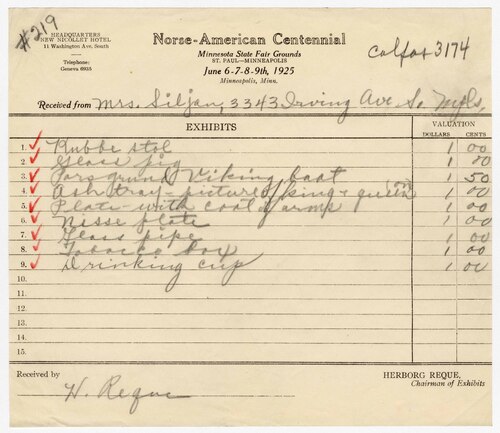 #219
HEADQUARTERS
NEW NICOLLET HOTEL
11 Washington Ave, South
Telephone:
Geneva 6935
Norse-American Centennial
Minnesota State Fair Grounds
ST. PAUL—MINNEAPOLIS
June 6-7-8-9th, 1925
Minneapolis, Minn.
Colfax 3174
Received from Mrs. Siljan, 3343 Irving Ave So. Mpls,
EXHIBITS
VALUATION
DOLLARS CENTS
1. Rubbe stol 1 00
2. Glass pig 1 00
3. Porsgrund Viking boat 1 50
4. Ash tray - picture of king + queen 1 00
5. Plate - with coat of arms 1 00
6. Nisse plate 1 00
7. Glass pipe 1 00
8. Tobacco box 1 00
9. Drinking cup 1 00
10.
11.
12.
13.
14.
15.
Received by
H. Reque
HERBORG REQUE,
Chairman of Exhibits